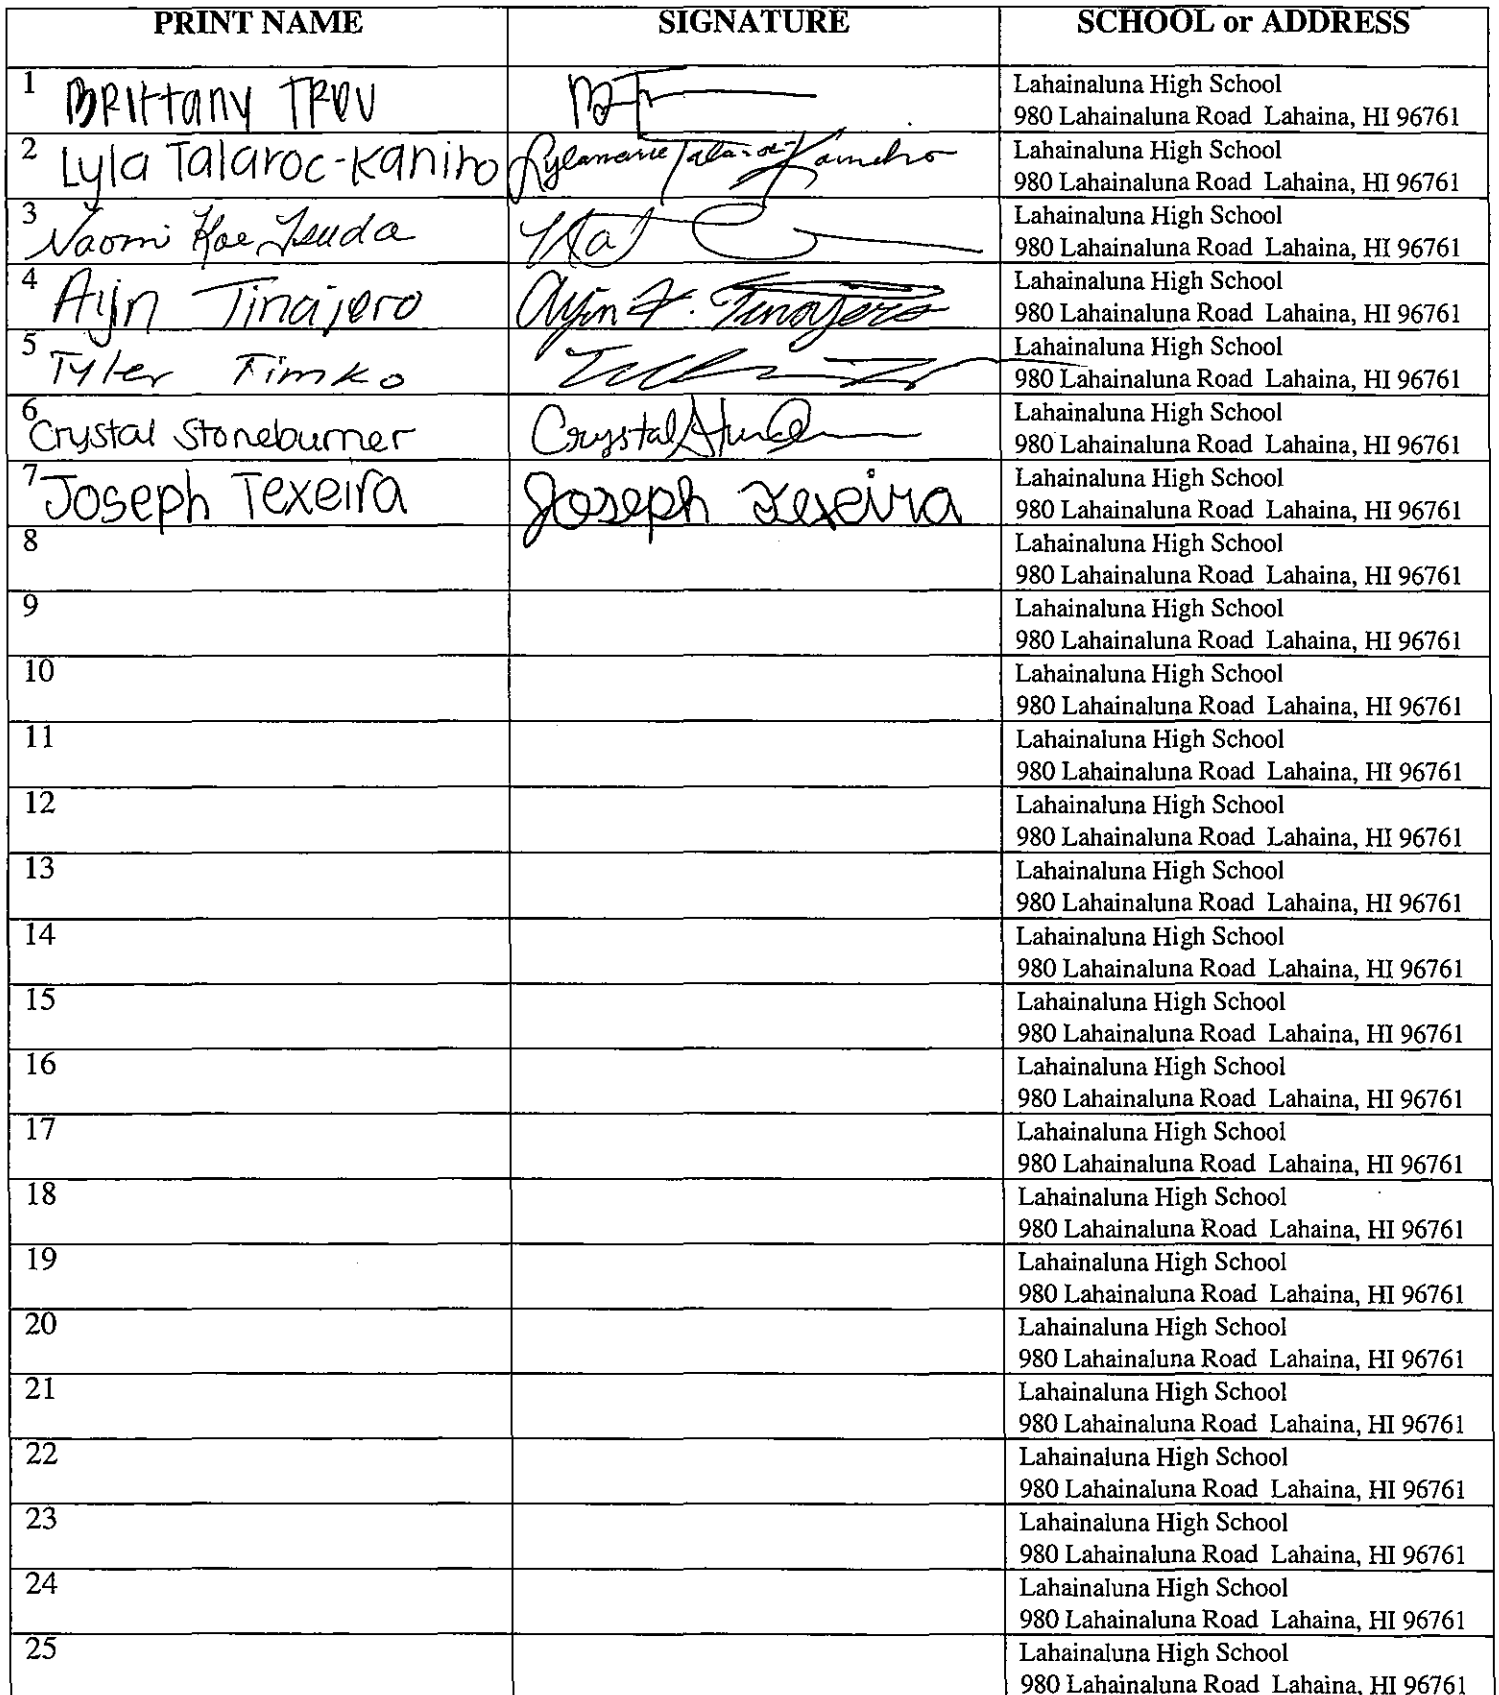 PRINT NAME SIGNATURE SCHOOL or ADDRESS
1 Brittany Lahainaluna High School
980 Lahainaluna Road Lahaina, HI 96761
2 Lyla Talaroc-Kaniho Lahainaluna High School
980 Lahainaluna Road Lahaina, HI 96761
3 Naomi Kae Tsuda Lahainaluna High School
980 Lahainaluna Road Lahaina, HI 96761
4 Tinajero Tinajero Lahainaluna High School
980 Lahainaluna Road Lahaina, HI 96761
5 Tyler Timko Lahainaluna High School
980 Lahainaluna Road Lahaina, HI 96761
6 Crystal Stoneburner Crystal Lahainaluna High School
980 Lahainaluna Road Lahaina, HI 96761
7 Joseph Texeira Joseph Texeira Lahainaluna High School
980 Lahainaluna Road Lahaina, HI 96761
8 Lahainaluna High School
980 Lahainaluna Road Lahaina, HI 96761
9 Lahainaluna High School
980 Lahainaluna Road Lahaina, HI 96761
10 Lahainaluna High School
980 Lahainaluna Road Lahaina, HI 96761
11 Lahainaluna High School
980 Lahainaluna Road Lahaina, HI 96761
12 Lahainaluna High School
980 Lahainaluna Road Lahaina, HI 96761
13 Lahainaluna High School
980 Lahainaluna Road Lahaina, HI 96761
14 Lahainaluna High School
980 Lahainaluna Road Lahaina, HI 96761
15 Lahainaluna High School
980 Lahainaluna Road Lahaina, HI 96761
16 Lahainaluna High School
980 Lahainaluna Road Lahaina, HI 96761
17 Lahainaluna High School
980 Lahainaluna Road Lahaina, HI 96761
18 Lahainaluna High School
980 Lahainaluna Road Lahaina, HI 96761
19 Lahainaluna High School
980 Lahainaluna Road Lahaina, HI 96761
20 Lahainaluna High School
980 Lahainaluna Road Lahaina, HI 96761
21 Lahainaluna High School
980 Lahainaluna Road Lahaina, HI 96761
22 Lahainaluna High School
980 Lahainaluna Road Lahaina, HI 96761
23 Lahainaluna High School
980 Lahainaluna Road Lahaina, HI 96761
24 Lahainaluna High School
980 Lahainaluna Road Lahaina, HI 96761
25 Lahainaluna High School
980 Lahainaluna Road Lahaina, HI 96761